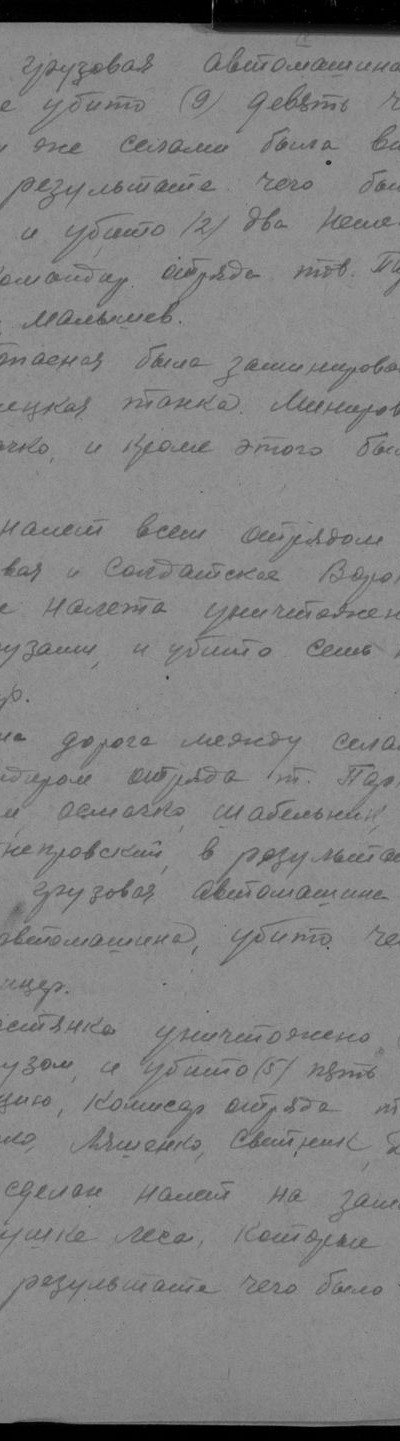 грузовая автомашина
е убито (9) девять ч
и же селами была в
результате чего бы
и убито (2) два неме
командир отряда тов. Па
Малышев.
опасная была заминирова
ецкая танка. Миниров
очко, и кроме этого бы
налет всем отрядом
вая и Солдатское Воро
е налета уничтожен
узами, и убито семь
р.
на дорога между села
ндиром отряда т. Пар
и, Осмачко, Шабельник,
непровский, в результа
грузовая автомашина
автомашина, убито че
ицер.
естянка уничтожено
узом, и убито (5) пять
цию, Комисар отряда т
ло, Ляшенко, Свитник,
сделан налет на за
ушке леса, которые
результате чего было